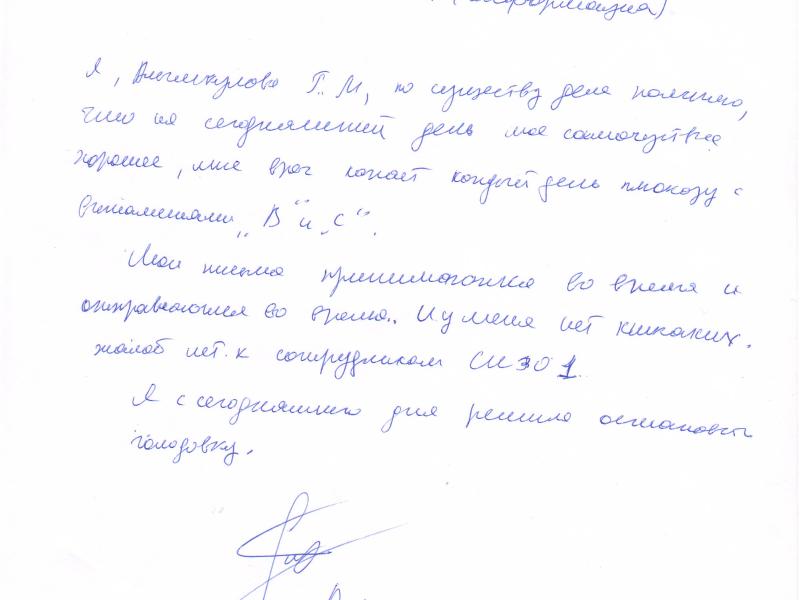 Я, Алимкулова Г. М, по существу дела поясняю,
что на сегодняшний день мое самочувствие
хорошее, мне врач капает каждый день глюкозу с
витаминами „В“ и „С“.
Мои письма принимаются во время и
отправляются во время.. И у меня нет никаких.
жалоб нет. к сотрудникам СИЗО 1.
Я с сегодняшнего дня решила остановить
голодовку.